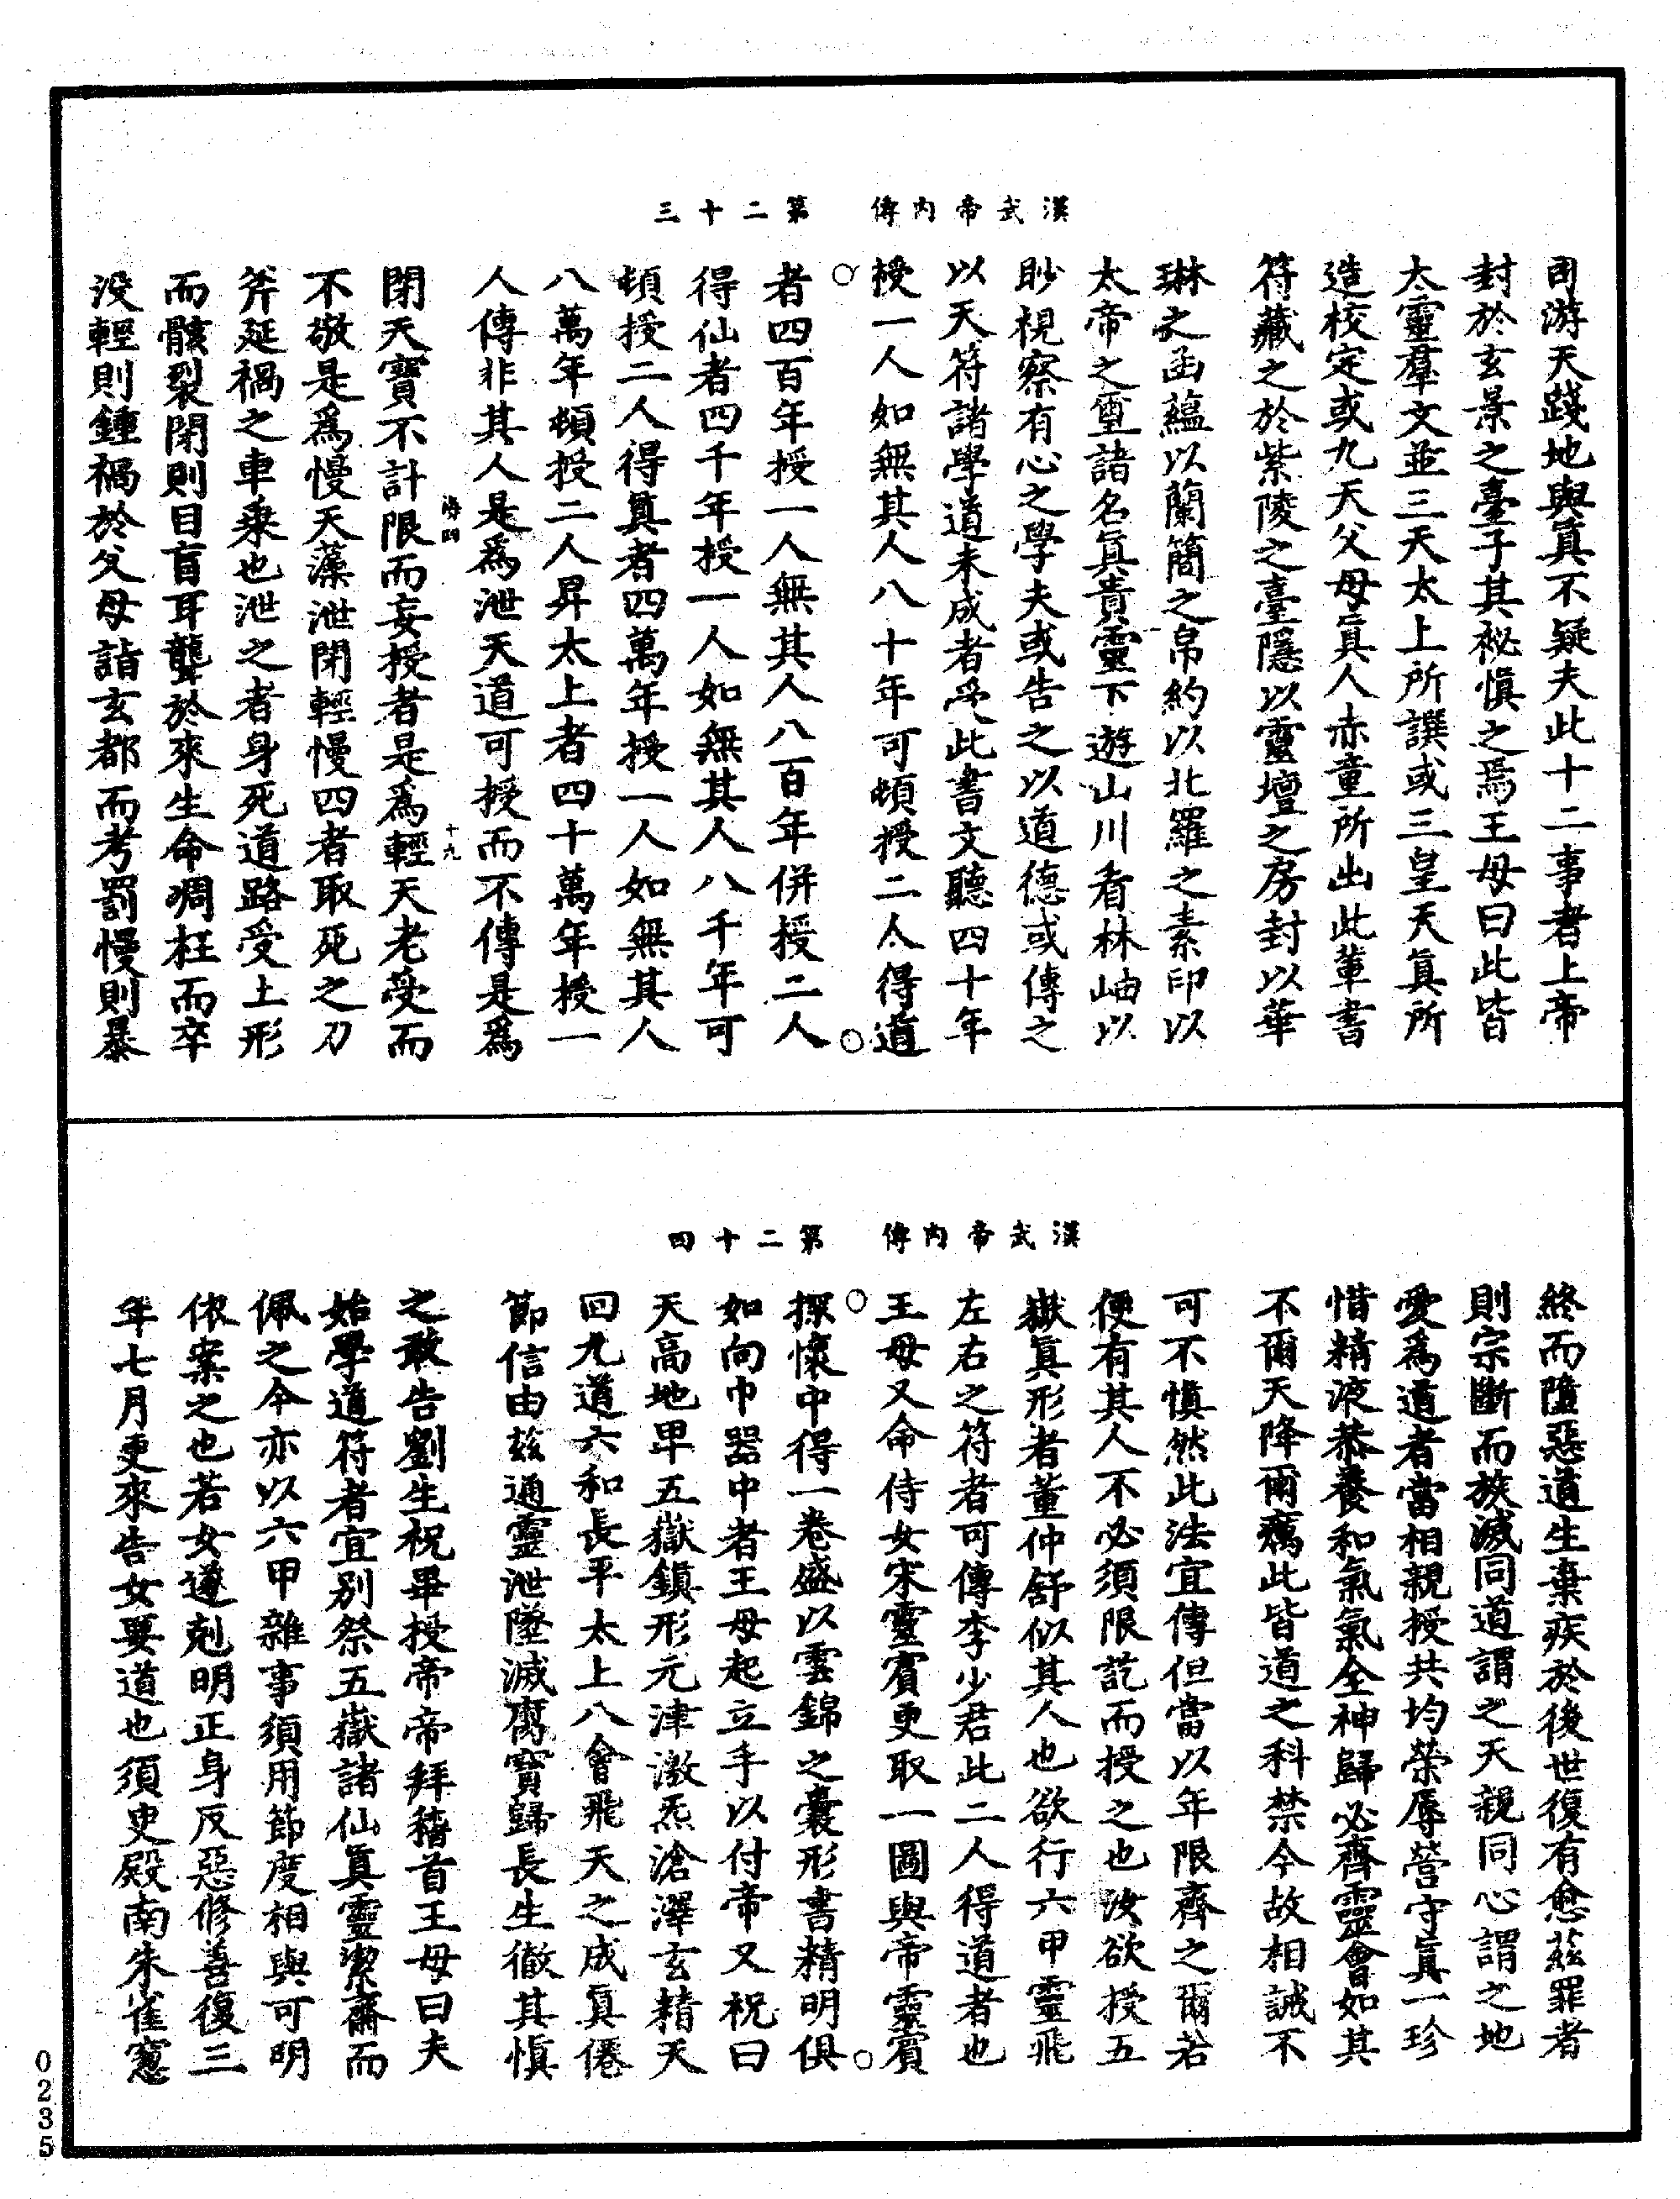 漢武帝內傳　第二十三
司游天踐地與真不疑夫此十二事者上帝
封於玄景之臺子其祕慎之焉王母曰此皆
太靈羣文並三天太上所譔或三皇天真所
造校定或九天父母真人赤童所出此輩書
符藏之於紫陵之臺隱以靈壇之房封以華
琳之函蘊以蘭簡之帛約以北羅之素印以
太帝之璽諸名真貴靈下遊山川看林岫以
眇視察有心之學夫或告之以道德或傳之
以天符諸學道未成者受此書文聽四十年
授一人如無其人八十年可頓授二人得道
者四百年授一人無其人八百年併授二人
得仙者四千年授一人如無其人八千年可
頓授二人得真者四萬年授一人如無其人
八萬年頓授二人昇太上者四十萬年授一
人傳非其人是為泄天道可授而不傳是為
海四　十九
閉天寶不計限而妄授者是為輕天老受而
不敬是為慢天藻泄閉輕慢四者取死之刀
斧延禍之車乘也泄之者身死道路受土形
而骸裂閉則目盲耳聾於來生命凋枉而卒
沒輕則鍾禍於父母詣玄都而考罰慢則暴
漢武帝內傳　第二十四
終而墮惡道生棄疾於後世復有愈茲罪者
則宗斷而族滅同道謂之天親同心謂之地
愛為道者當相親授共均榮辱營守真一珍
惜精液恭養和氣氣全神歸必齊靈會如其
不爾天降爾癘此皆道之科禁今故相誡不
可不慎然此法宜傳但當以年限齊之爾若
便有其人不必須限訖而授之也汝欲授五
嶽真形者董仲舒似其人也欲行六甲靈飛
左右之符者可傳李少君此二人得道者也
王母又命侍女宋靈賓更取一圖與帝靈賓
探懷中得一卷盛以雲錦之囊形書精明俱
如向巾器中者王母起立手以付帝又祝曰
天高地卑五嶽鎮形元津激炁滄澤玄精天
回九道六和長平太上八會飛天之成真僊
節信由茲通靈泄墜滅腐寶歸長生徹其慎
之敢告劉生祝畢授帝帝拜稽首王母曰夫
始學道符者宜別祭五嶽諸仙真靈潔齋而
佩之今亦以六甲雜事須用節度相與可明
依案之也若女遂剋明正身反惡修善復三
年七月更來告女要道也須史殿南朱雀窻
0235